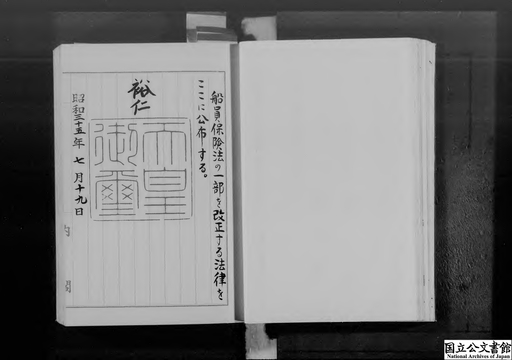 船員保険法の一部を改正する法律を
ここに公布する。
裕仁
天皇
御璽
昭和三十五年七月十九日
国立公文書館
National Archives of Japan